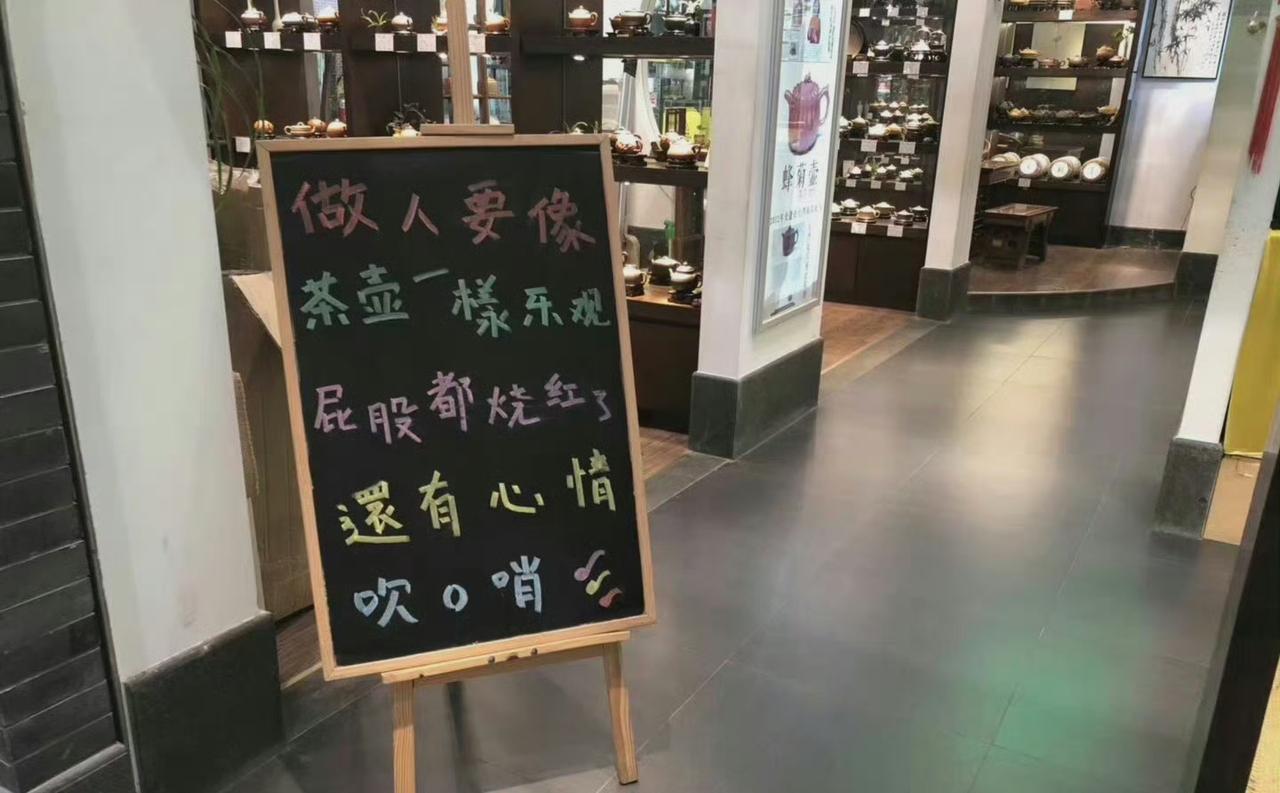 做人要像
茶壶一樣乐观
屁股都烧红了
還有心情
吹口哨
蜂菊壶